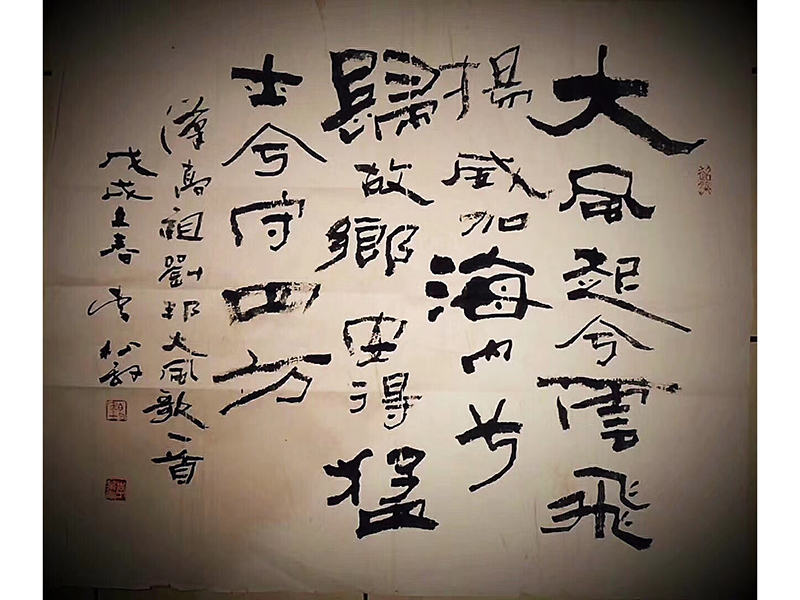 大風起兮雲飛
揚威加海内兮
歸故鄉安得猛
士兮守四方
漢高祖劉邦大風歌一首
戊戌立春 李松